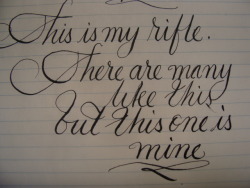 This is my rifle.
There are many
like this
but this one is
mine